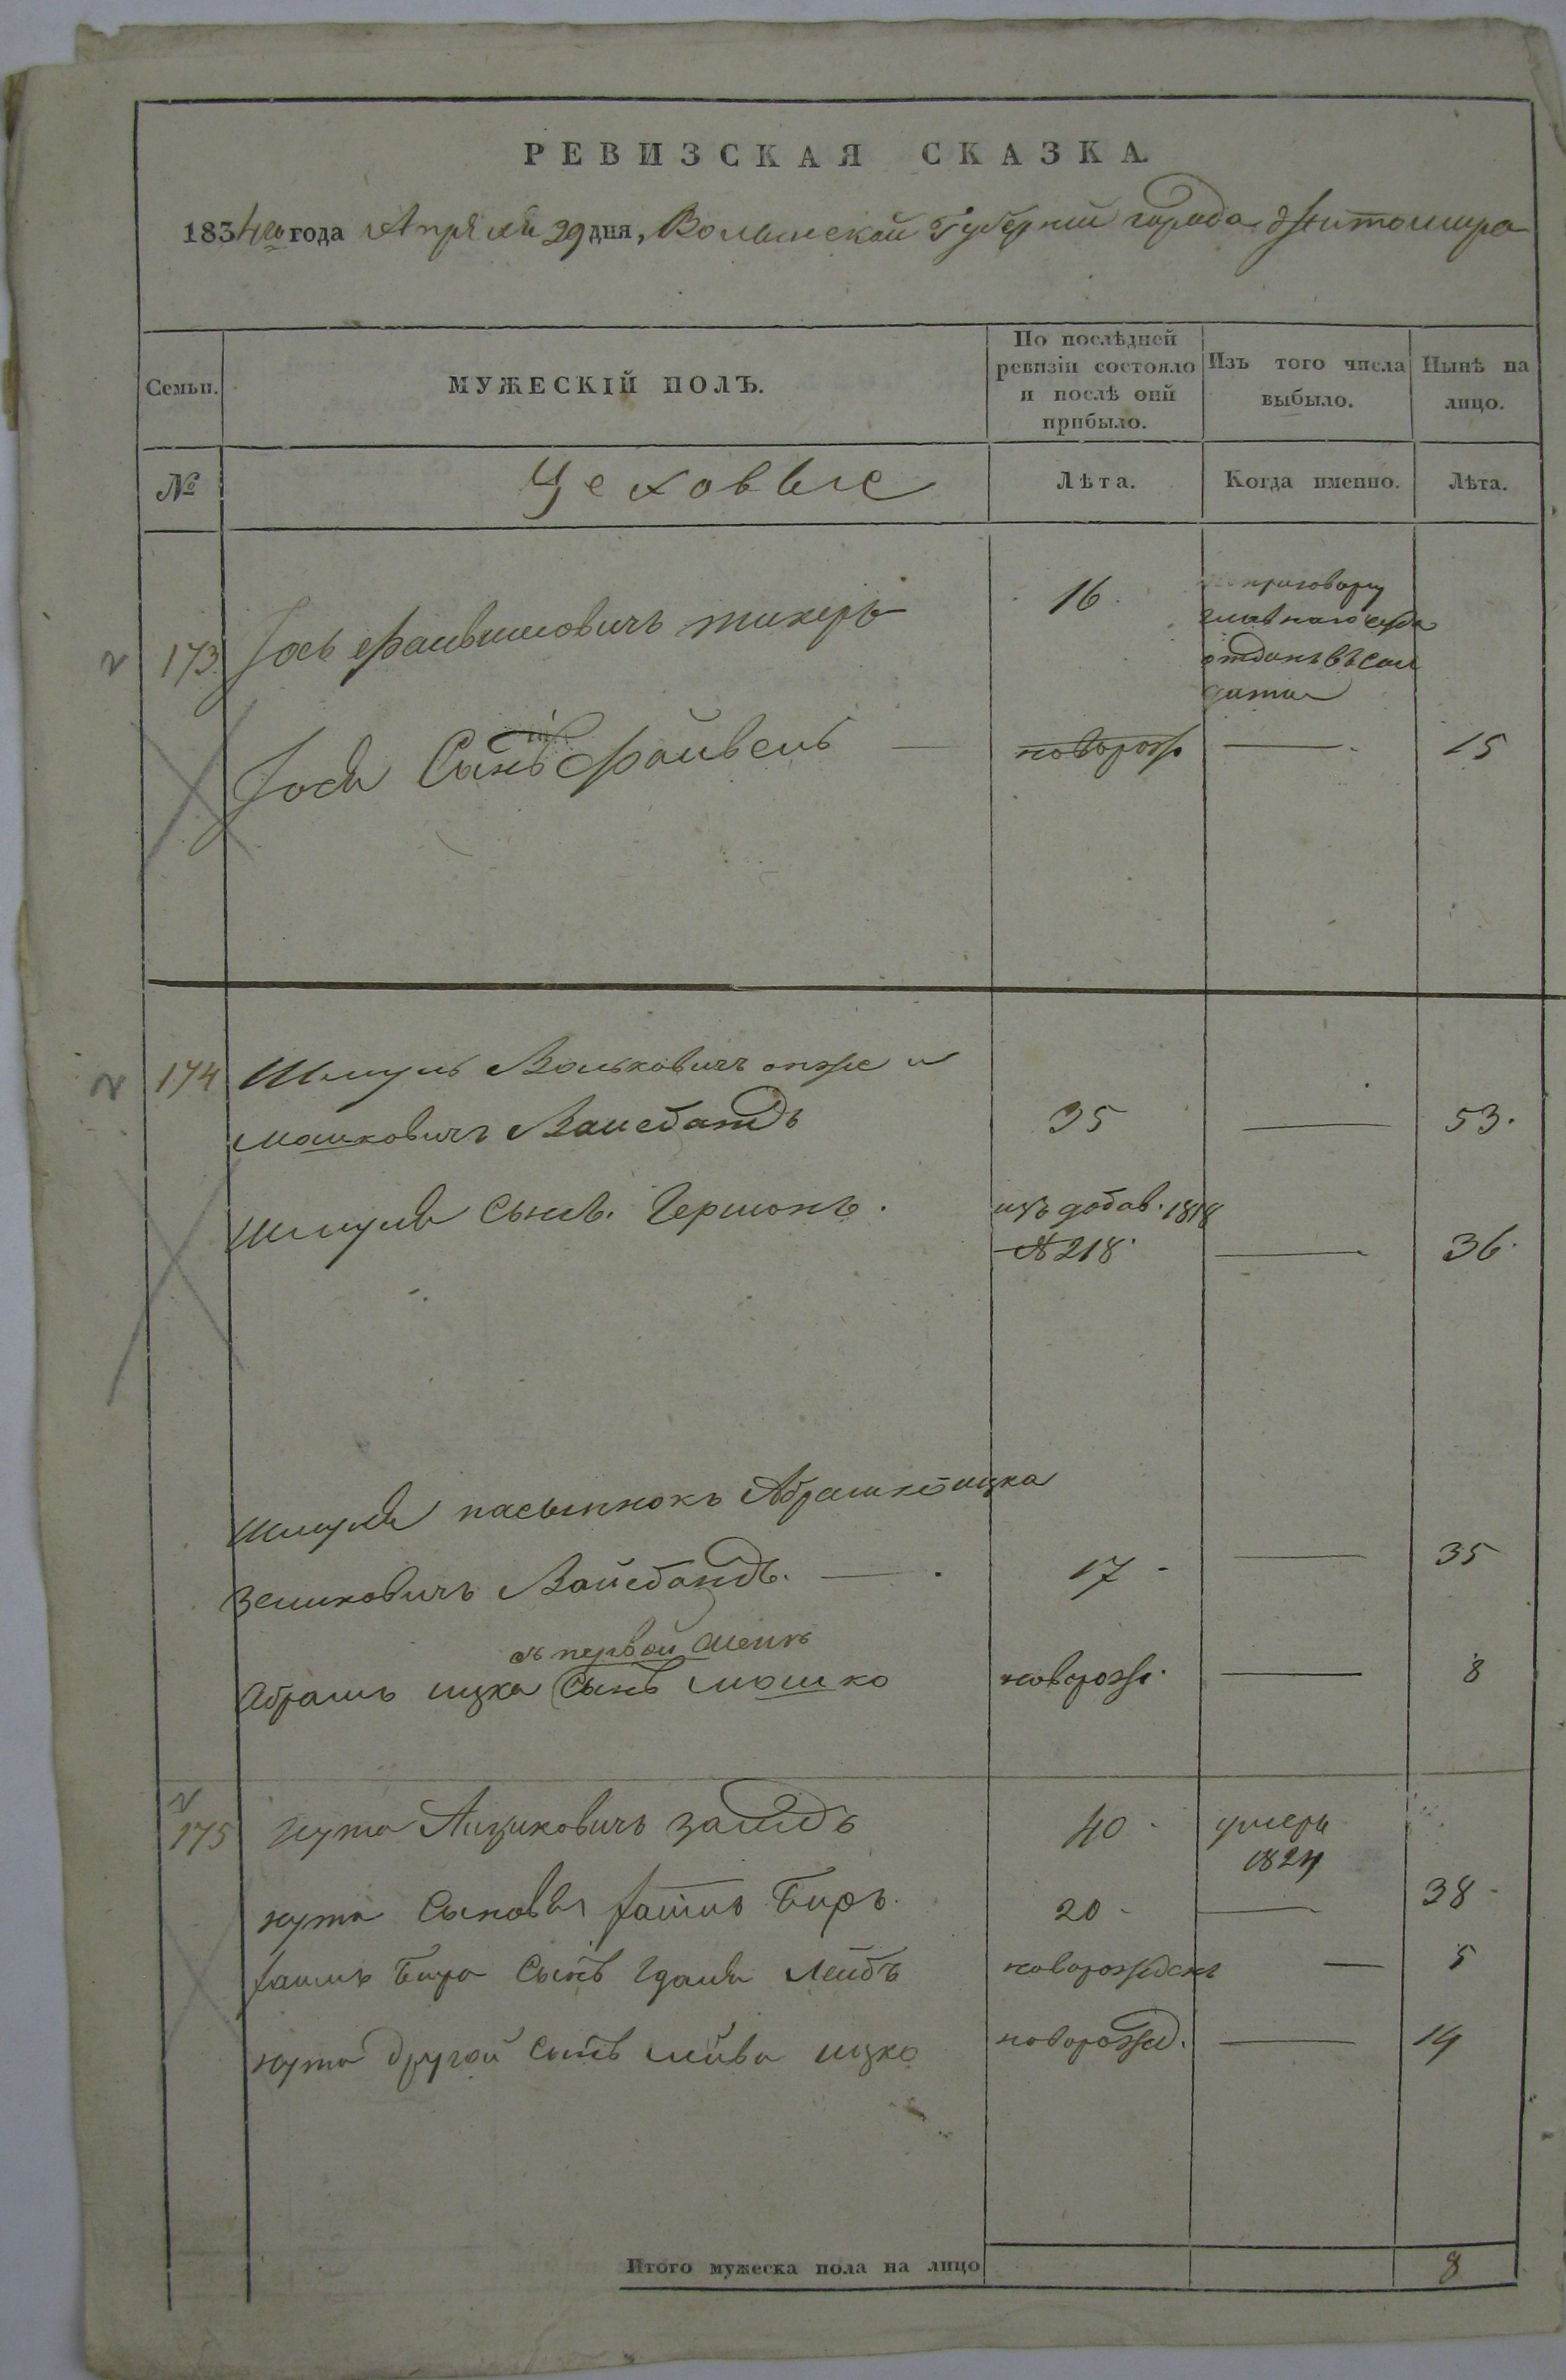 РЕВИЗСКАЯ СКАЗКА.
1834го года Апреля 29 дня, Волынской Губернии города Житомира
Семьи. МУЖЕСКІЙ ПОЛЪ. По послѣдней ревизіи состояло и послѣ оній прибыло. Изъ того числа выбыло. Нынѣ на лицо.
№ Цеховые Лѣта. Когда именно. Лѣта.
173 Іось Файвишовичъ 16. приговору
главнаго суда
отданъ въ сол
даты
Іося Сынъ Файвель — новорож — 15
174 Шмуль Вольковичъ онже и
Мошковичъ Вайсбандъ 35 — 53.
Шмуля сынъ. Гершонъ. изъ добав. 1818
№ 218. — 36.
Шмуля пасынокъ Абрашко ицка
Зеликовичъ Вайсбандъ. — 17 — 35
съ первой жены
Абрашъ ицка Сынъ мошко новорож. — 8
175 нута Аициковичъ 40 умеръ
1824
нута Сыновья Биръ. 20 — 38
Бира Сынъ Лейбъ новорожденъ — 5
нута другой сынъ лейба ицко новорожд. — 14
Итого мужеска пола на лицо 8